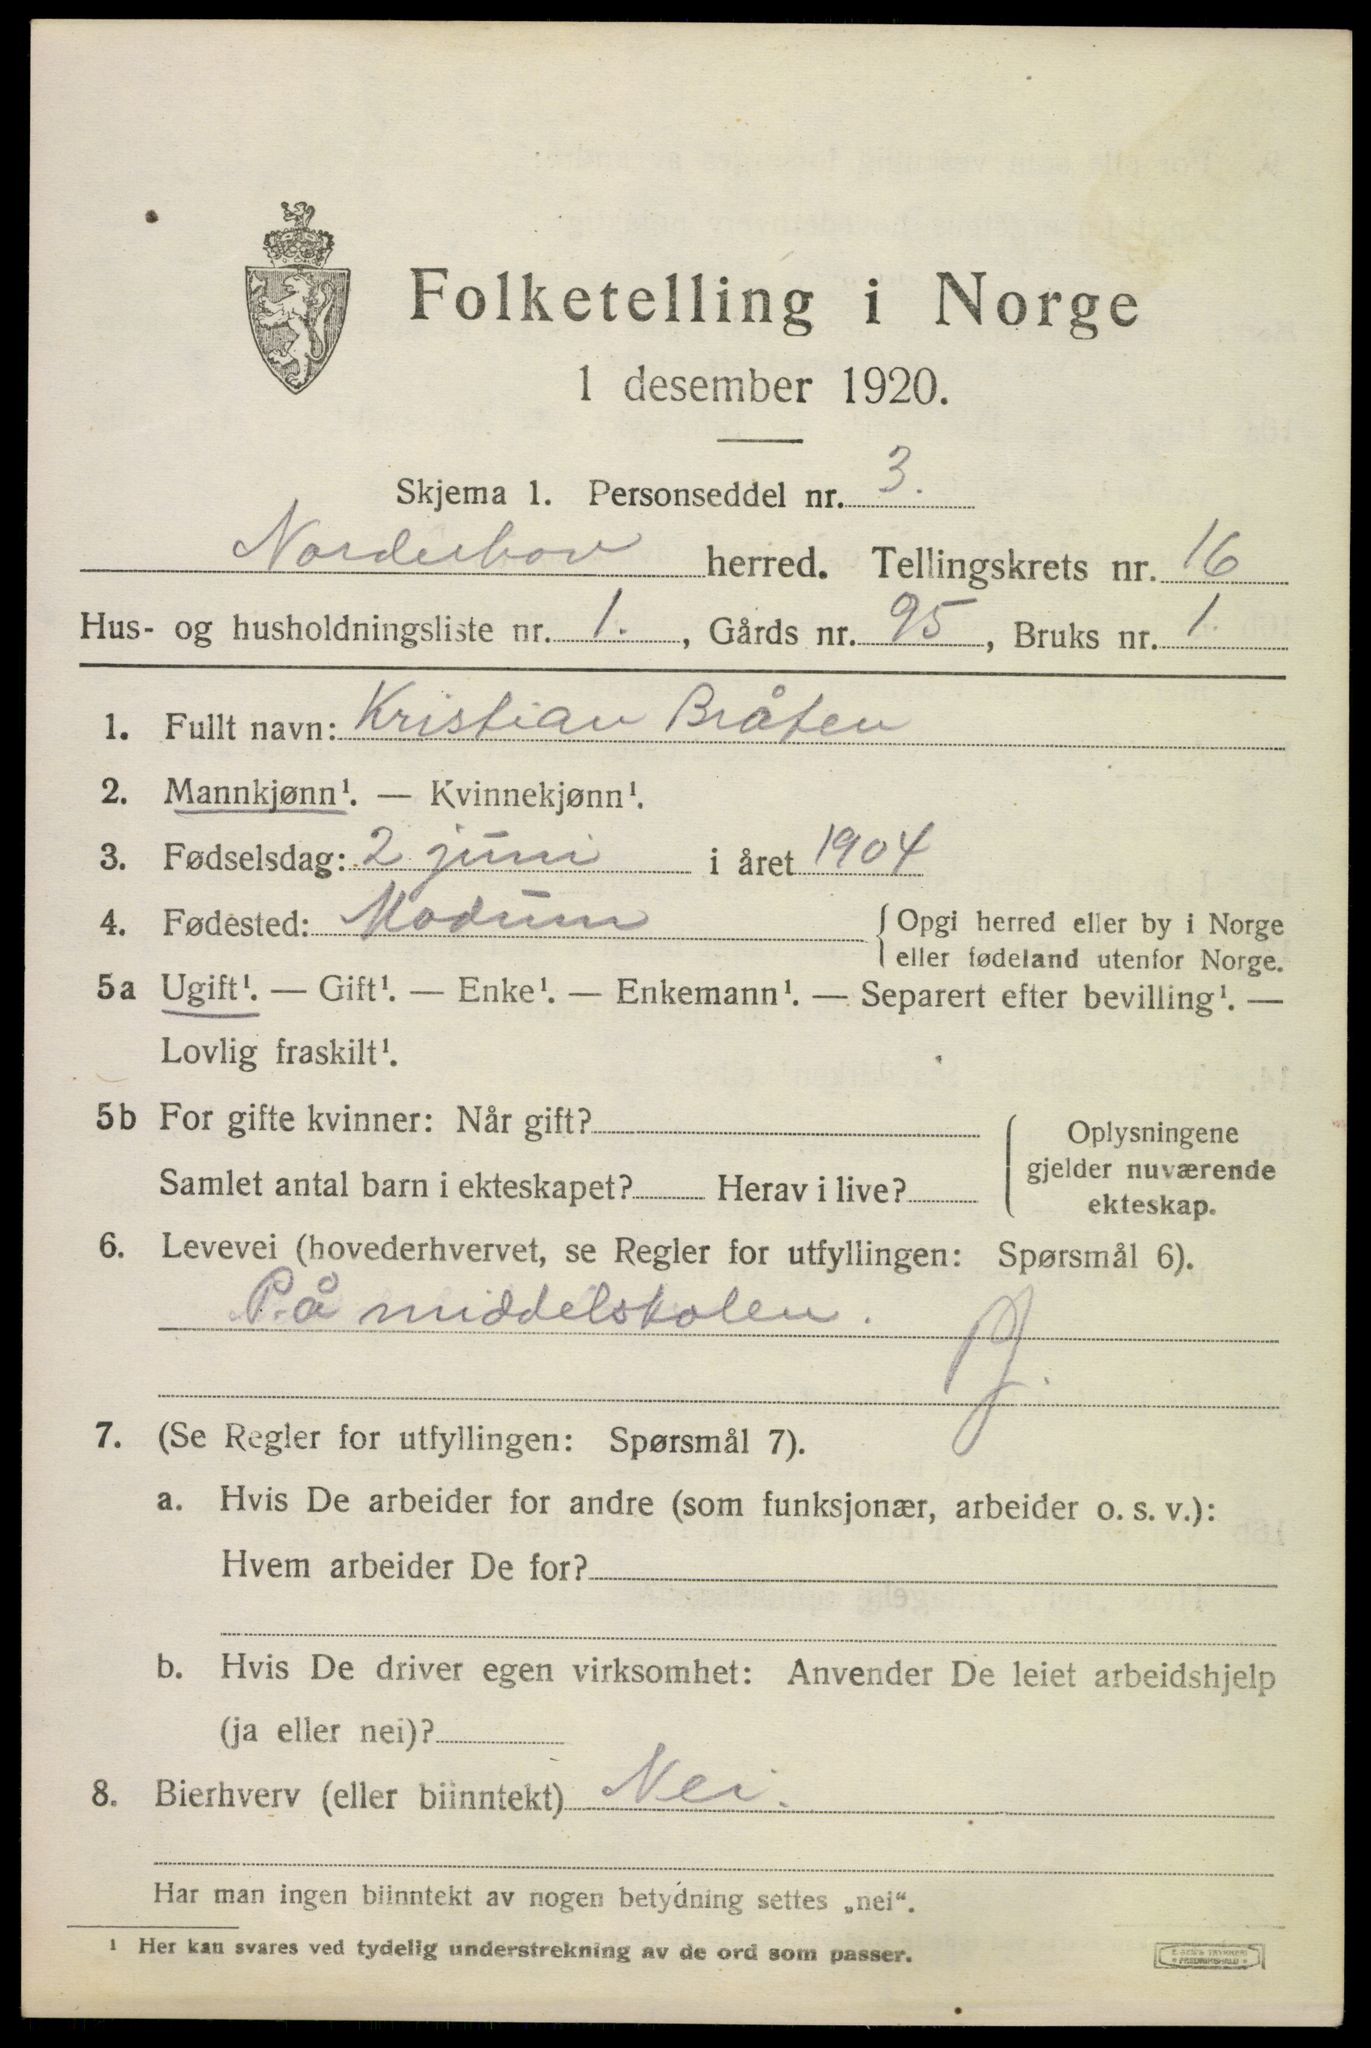 Folketelling i Norge
1 desember 1920.
Skjema 1. Personseddel nr. 3.
Norderhov herred. Tellingskrets nr. 16
Hus- og husholdningsliste nr. 1., Gårds nr. 95, Bruks nr. 1.
1. Fullt navn: Kristian Bråten
2. Mannkjønn¹. — Kvinnekjønn¹.
3. Fødselsdag: 2 juni i året 1904
4. Fødested: Modum { Opgi herred eller by i Norge
eller fødeland utenfor Norge.
5a Ugift¹. — Gift¹. — Enke¹. — Enkemann¹. — Separert efter bevilling¹. —
Lovlig fraskilt¹.
5b For gifte kvinner: Når gift?
Samlet antal barn i ekteskapet? Herav i live?
Oplysningene
gjelder nuværende
ekteskap.
6. Levevei (hovederhvervet, se Regler for utfyllingen: Spørsmål 6).
På middelskolen.
7. (Se Regler for utfyllingen: Spørsmål 7).
a. Hvis De arbeider for andre (som funksjonær, arbeider o. s. v.):
Hvem arbeider De for?
b. Hvis De driver egen virksomhet: Anvender De leiet arbeidshjelp
(ja eller nei)?
8. Bierhverv (eller biinntekt) Nei.
Har man ingen biinntekt av nogen betydning settes „nei“.
¹ Her kan svares ved tydelig understrekning av de ord som passer.